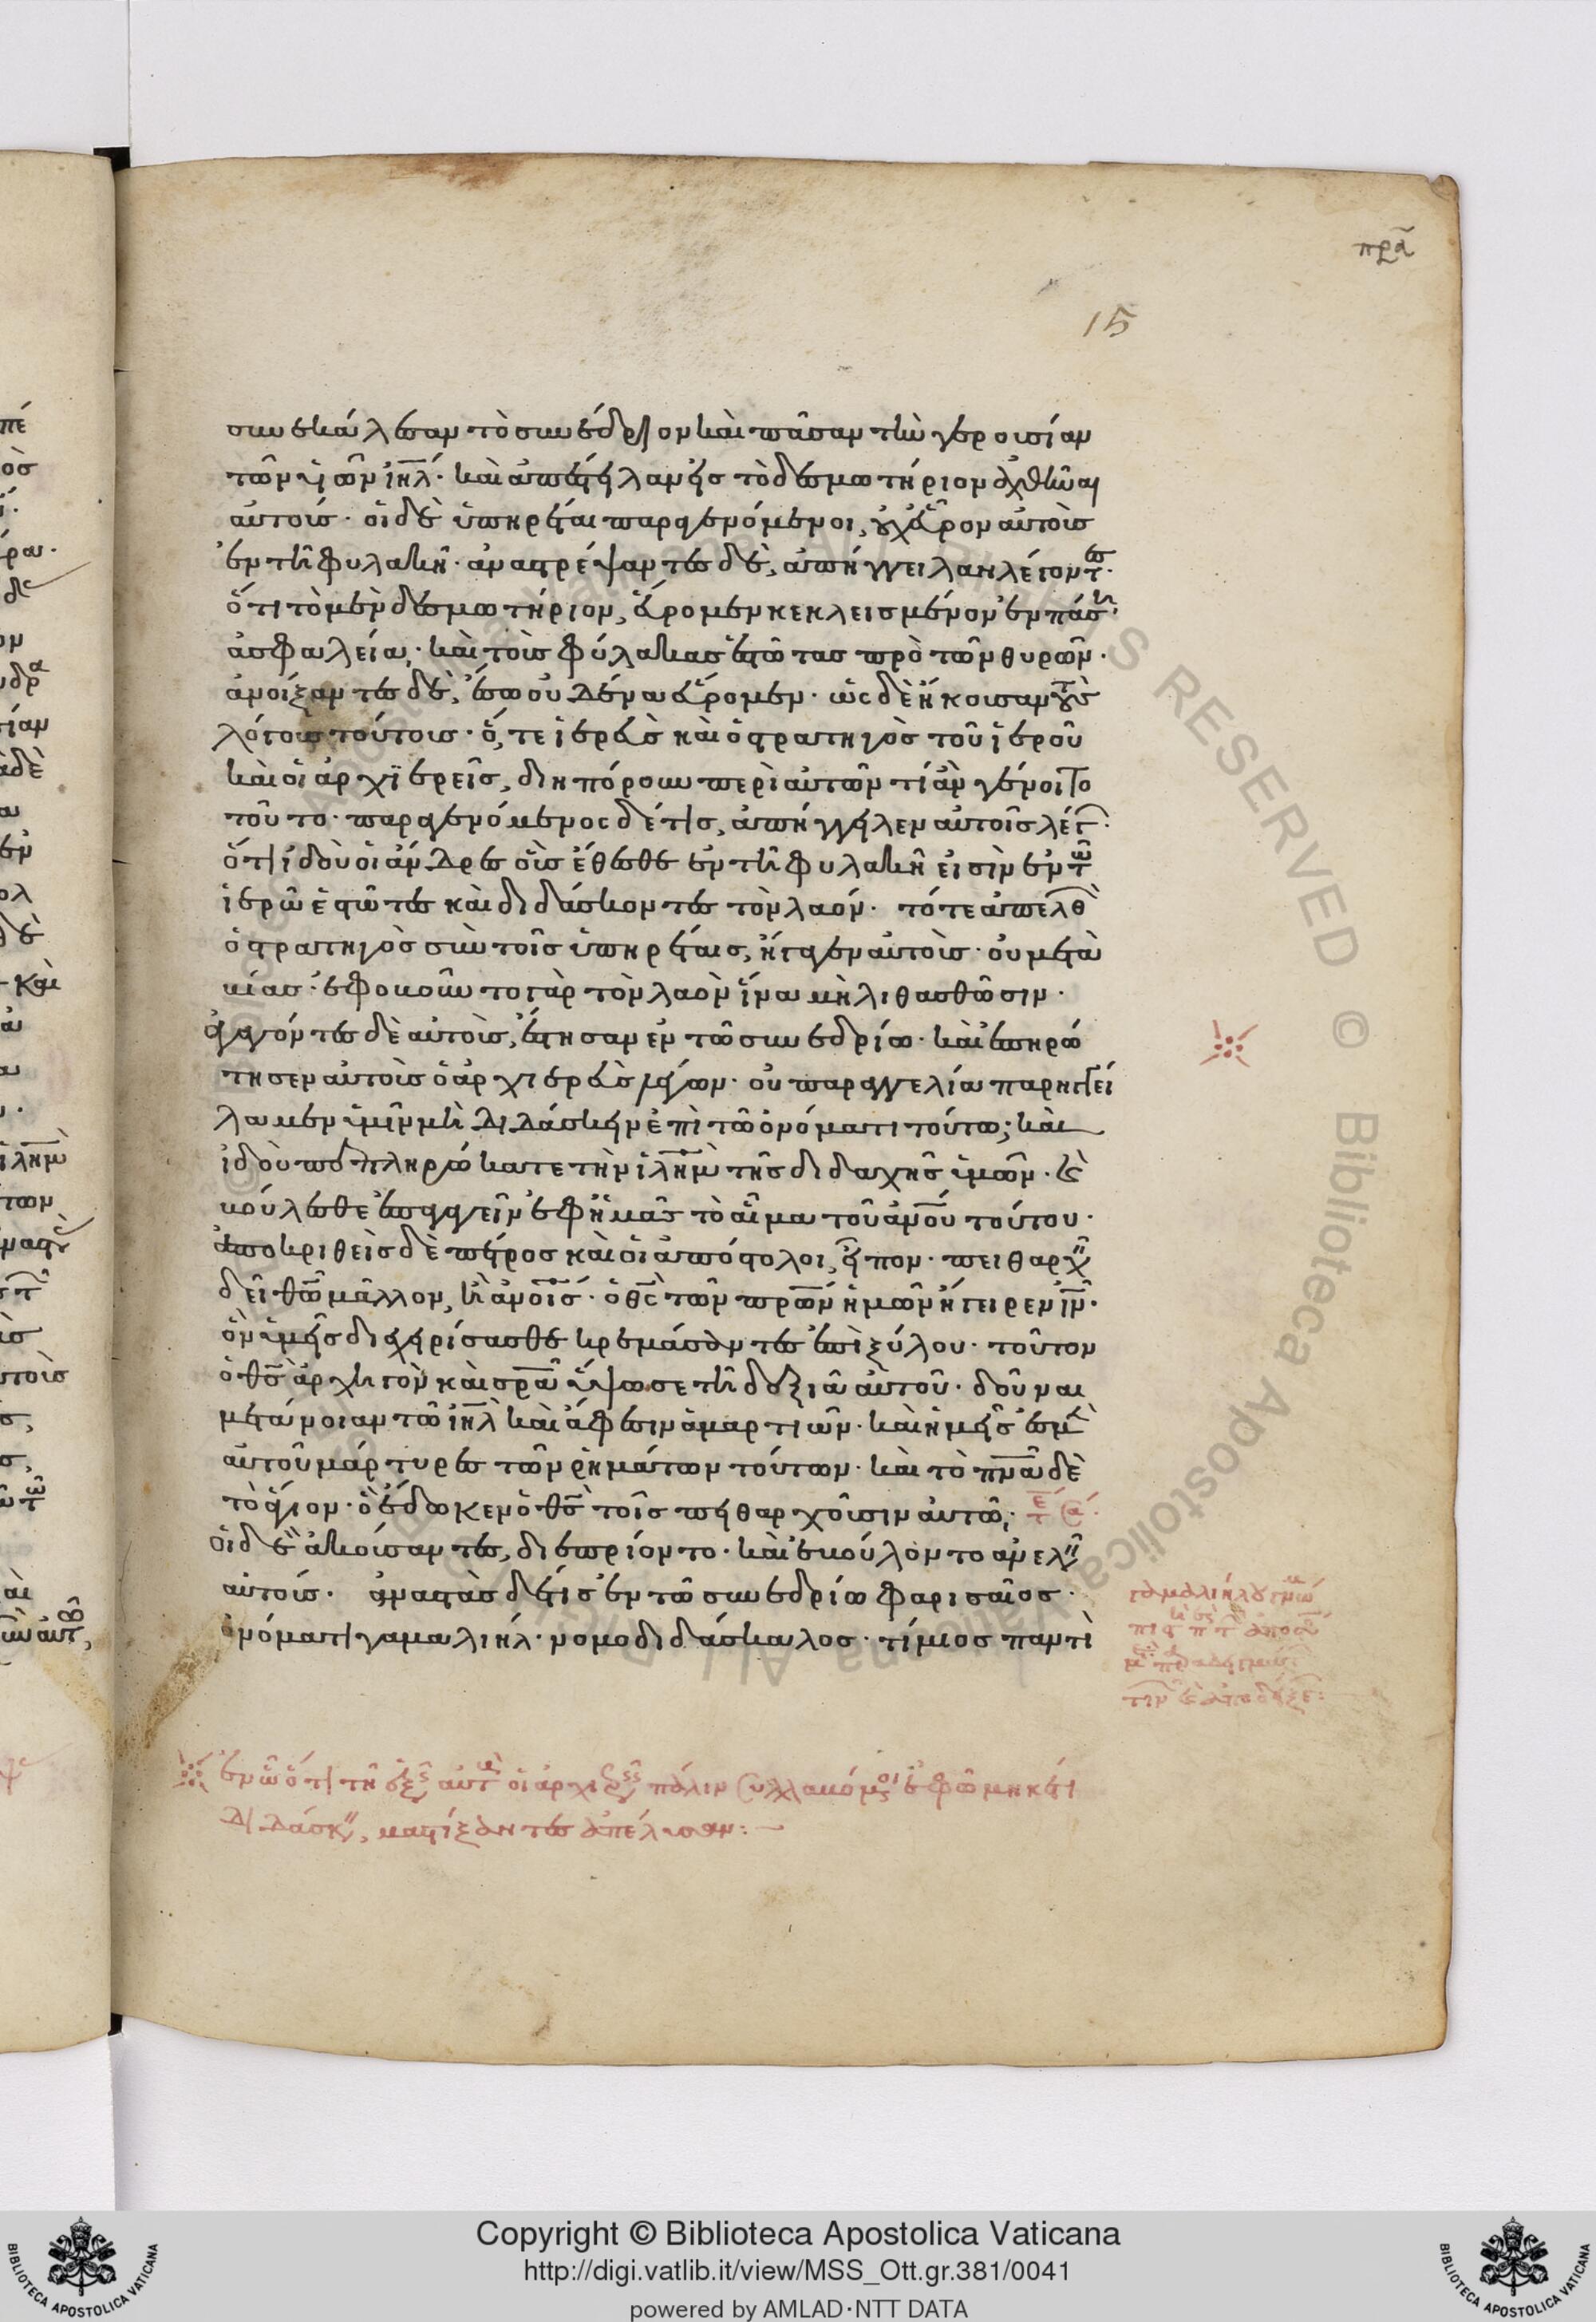 πρα
15
συνεκάλεσαν τὸ συνέδριον καὶ πᾶσαν τὴν γερουσίαν
τῶν υἱῶν ἰηλ· καὶ ἀπέστειλαν εἰς τὸ δεσμωτήριον ἀχθῆναι
αὐτούς· οἱ δὲ ὑπηρέται παραγενόμενοι, οὐχ εὗρον αὐτοὺς
ἐν τῆ φυλακῆ· ἀναστρέψαντες δὲ, ἀπήγγειλαν λέγοντες·
ὅτι τὸ μὲν δεσμωτήριον, εὕρομεν κεκλεισμένον ἐν πάση
ἀσφαλεία· καὶ τοὺς φύλακας ἑστῶτας πρὸ τῶν θυρῶν·
ἀνοίξαντες δὲ, ἔσω οὐδένα εὕρομεν· ὡς δὲ ἤκουσαν τοὺς
λόγους τούτους· ὅ, τε ἱερεὺς καὶ ὁ στρατηγὸς τοῦ ἱεροῦ
καὶ οἱ ἀρχιερεῖς, διηπόρουν περὶ αὐτῶν τί ἂν γένοιτο
τοῦτο· παραγενόμενος δέ τις, ἀπήγγειλεν αὐτοῖς λέγ·
ὅτι ἰδοὺ οἱ ἄνδρες οὓς ἔθεσθε ἐν τῆ φυλακῆ εἰσὶν ἐν τῶ
ἱερῶ ἑστῶτες καὶ διδάσκοντες τὸν λαόν· τότε ἀπελθὼ
ὁ στρατηγὸς σὺν τοῖς ὑπηρέταις, ἤγαγεν αὐτοὺς· οὐ μετὰ
βίας· ἐφοβοῦντο γὰρ τὸν λαὸν ἵνα μὴ λιθασθῶσιν·
ἀγαγόντες δὲ αὐτοὺς, ἔστησαν ἐν τῶ συνεδρίω· καὶ ἐπηρώ
τησεν αὐτοὺς ὁ ἀρχιερεὺς λέγων· οὐ παραγγελία παρηγγεί
λαμεν ὑμῖν μὴ διδάσκειν ἐπὶ τῶ ὀνόματι τούτω; καὶ
ἰδοὺ πεπληρώκατε τὴν ἰλημ τῆς διδαχῆς ὑμῶν· καὶ
βούλεσθε ἐπαγαγεῖν ἐφ ἡμᾶς τὸ αἷμα τοῦ ἀνου τούτου·
ἀποκριθεὶς δὲ πέτρος καὶ οἱ ἀπόστολοι, εἶπον· πειθαρχεῖν
δεῖ θω μᾶλλον, ἢ ἀνοις· ὁ θς τῶν πρων ἡμῶν ἤγειρεν ιν·
ὃν ὑμεῖς διεχειρίσασθε κρεμάσαντες ἐπὶ ξύλου· τοῦτον
ὁ θς ἀρχηγὸν καὶ σρα ὕψωσε τῆ δεξιᾶ αὐτοῦ· δοῦναι
μετάνοιαν τῶ ἰηλ καὶ ἄφεσιν ἁμαρτιῶν· καὶ ἡμεῖς ἐσμὲ
αὐτοῦ μάρτυρες τῶν ῥημάτων τούτων· καὶ τὸ πνα δὲ
τὸ ἅγιον· ὃ ἔδωκεν ὁ θς τοῖς πειθαρχοῦσιν αὐτῶ·
οἱ δὲ ἀκούσαντες, διεπρίοντο· καὶ ἐβούλοντο ἀνελεῖν
αὐτούς· ἀναστὰς δέ τις ἐν τῶ συνεδρίω φαρισαῖος·
ὀνόματι γαμαλιήλ· νομοδιδάσκαλος· τίμιος παντὶ
γαμαλιήλου
ἐν ὧ ὅτι τῆ ἑξῆς αὐτοὺς οἱ ἀρχιερεῖς πάλιν συλλαβόμενοι ἐφ ὧ μηκέτι
διδάσκειν, μαστίξαντες ἀπέλυσαν:
Copyright © Biblioteca Apostolica Vaticana
http://digi.vatlib.it/view/MSS_Ott.gr.381/0041
powered by AMLAD·NTT DATA